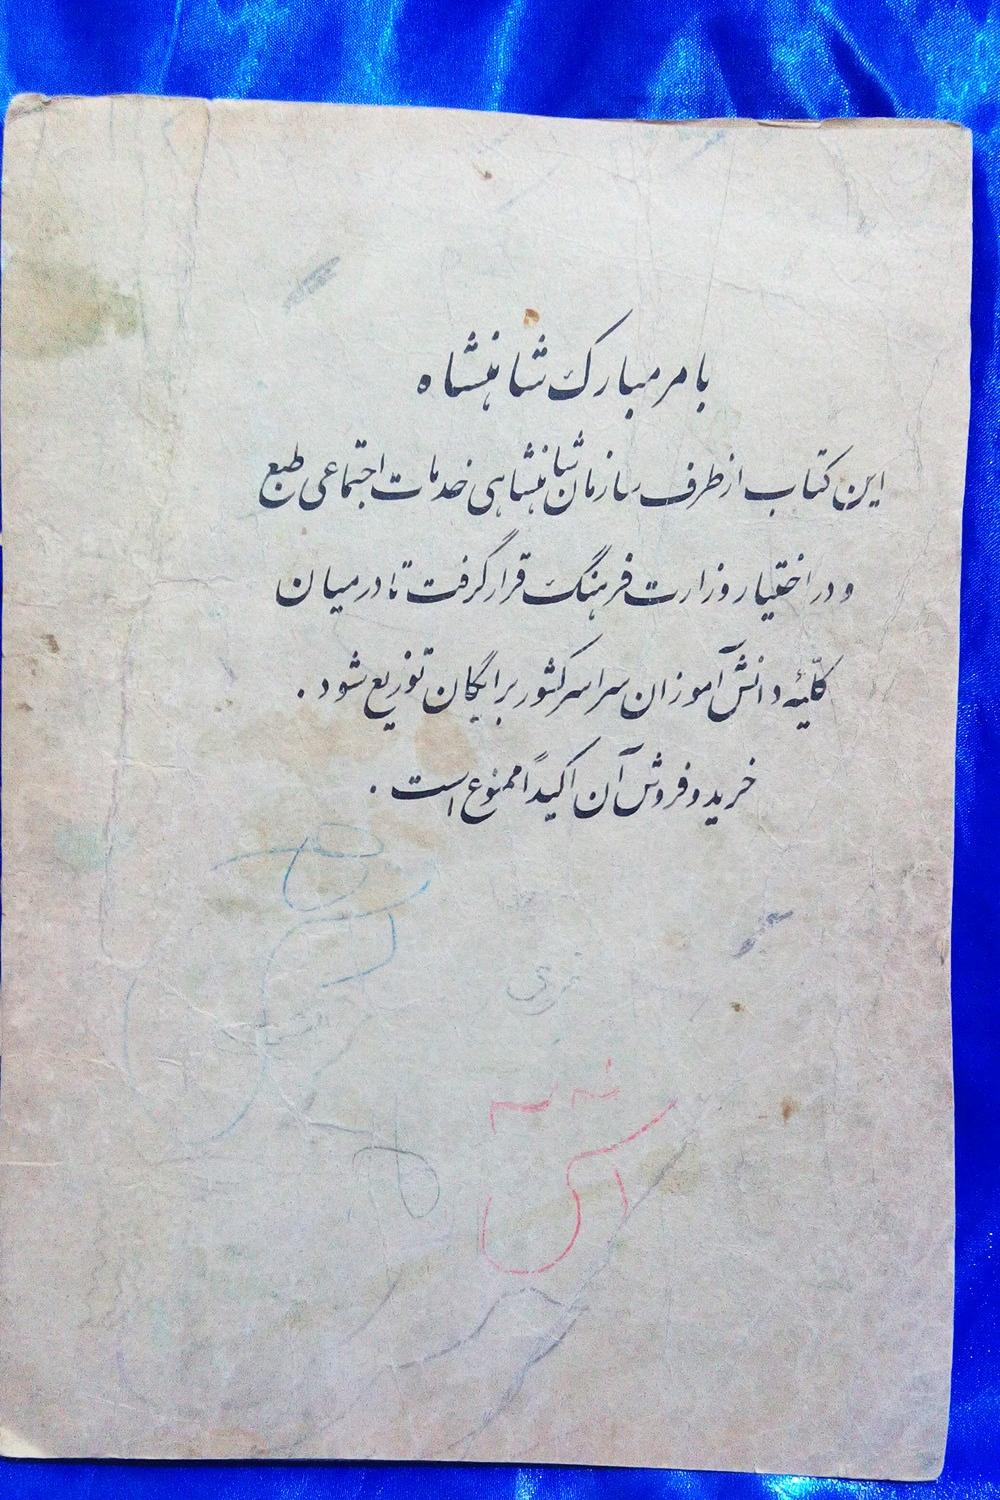 بامر مبارک شاهنشاه
این کتاب از طرف سازمان شاهنشاهی خدمات اجتماعی طبع
و در اختیار وزارت فرهنگ قرار گرفت تا در میان
کلیّهٔ دانش‌آموزان سراسر کشور برایگان توزیع شود .
خرید و فروش آن اکیداً ممنوع است .